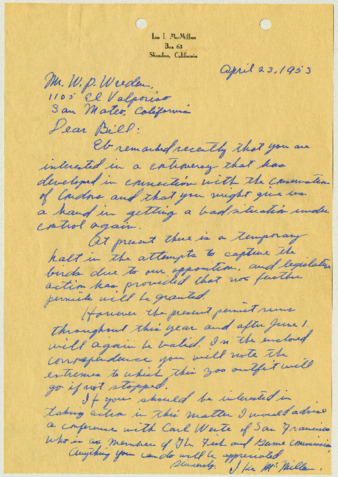 Ian I. McMillan
Box 63
Shandon, California
April 23, 1953
Mr. W. P. Wreden,
1105 El Valparaiso
San Mateo, California
Dear Bill:
Eb remarked recently that you are
interested in a controversy that has
developed in connection with the conservation
of Condors and that you might give us
a hand in getting a bad situation under
control again.
At present there is a temporary
halt in the attempts to capture the
birds due to our opposition, and legislative
action has provided that no further
permits will be granted.
However the present permit runs
throughout this year and after June 1.
will again be valid. In the enclosed
correspondence you will note the
extremes to which this zoo outfit will
go if not stopped.
If you should be interested in
taking action in this matter I would advise
a conference with Carl Wente of San Francisco
who is a member of The Fish and Game Commission.
Anything you can do will be appreciated
Sincerely, Ian McMillan